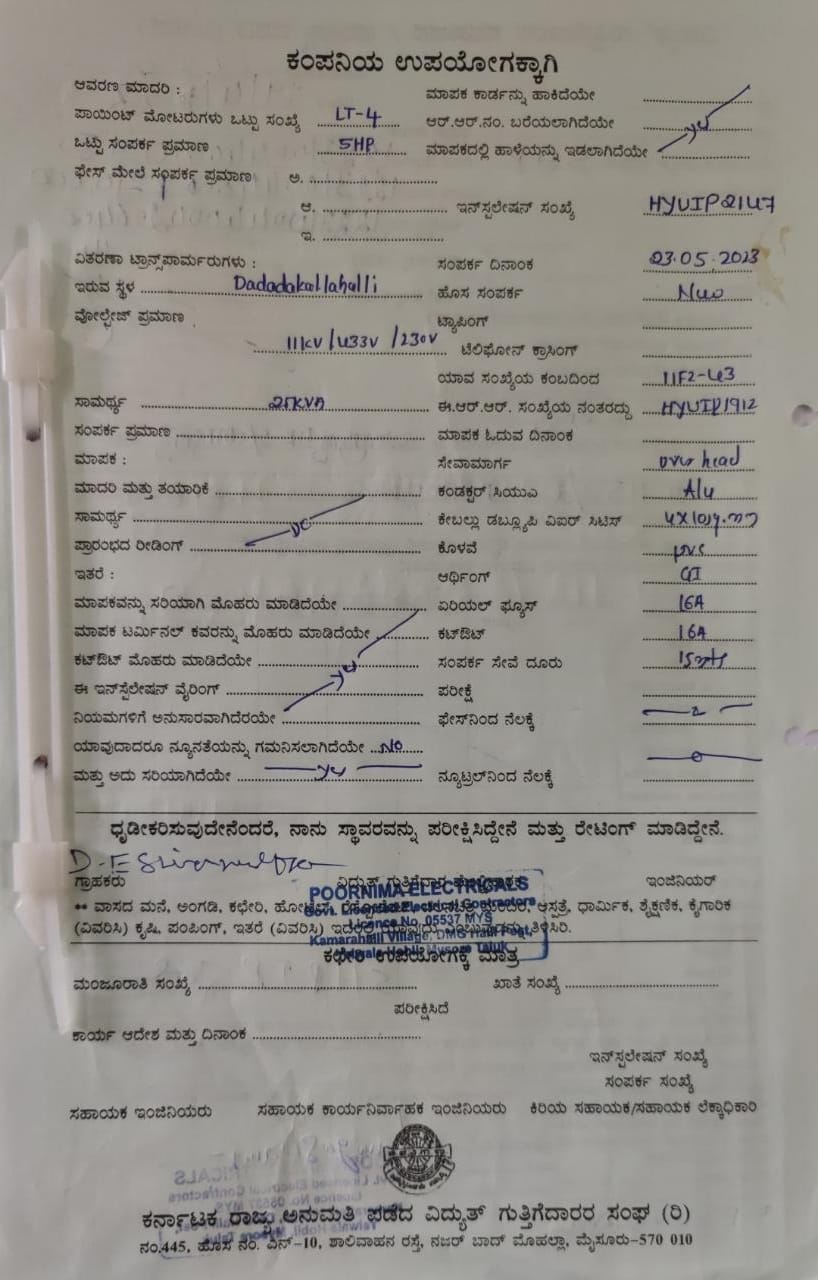 ಕಂಪನಿಯ ಉಪಯೋಗಕ್ಕಾಗಿ
ಆವರಣ ಮಾದರಿ :
ಮಾಪಕ ಕಾರ್ಡನ್ನು ಹಾಕಿದೆಯೇ
ಪಾಯಿಂಟ್ ಮೋಟರುಗಳು ಒಟ್ಟು ಸಂಖ್ಯೆ LT-4 ಆರ್.ಆರ್.ನಂ. ಬರೆಯಲಾಗಿದೆಯೇ
ಒಟ್ಟು ಸಂಪರ್ಕ ಪ್ರಮಾಣ 5HP ಮಾಪಕದಲ್ಲಿ ಹಾಳೆಯನ್ನು ಇಡಲಾಗಿದೆಯೇ
ಫೇಸ್ ಮೇಲೆ ಸಂಪರ್ಕ ಪ್ರಮಾಣ ಅ.
ಆ. ಇನ್‌ಸ್ಟಲೇಷನ್ ಸಂಖ್ಯೆ HYUIP2147
ಇ.
ವಿತರಣಾ ಟ್ರಾನ್ಸ್‌ಪಾರ್ಮರುಗಳು : ಸಂಪರ್ಕ ದಿನಾಂಕ 23.05.2023
ಇರುವ ಸ್ಥಳ Dadadakallahalli ಹೊಸ ಸಂಪರ್ಕ
ವೋಲ್ಟೇಜ್ ಪ್ರಮಾಣ ಟ್ಯಾಪಿಂಗ್
11kV/433V/230V ಟೆಲಿಫೋನ್ ಕ್ರಾಸಿಂಗ್
ಯಾವ ಸಂಖ್ಯೆಯ ಕಂಬದಿಂದ 11F2-43
ಸಾಮರ್ಥ್ಯ 25KVA ಈ.ಆರ್.ಆರ್. ಸಂಖ್ಯೆಯ ನಂತರದ್ದು HYUIP1912
ಸಂಪರ್ಕ ಪ್ರಮಾಣ ಮಾಪಕ ಓದುವ ದಿನಾಂಕ
ಮಾಪಕ : ಸೇವಾಮಾರ್ಗ over head
ಮಾದರಿ ಮತ್ತು ತಯಾರಿಕೆ ಕಂಡಕ್ಟರ್ ಸಿಯುಎ Alu
ಸಾಮರ್ಥ್ಯ ಕೇಬಲ್ಲು ಡಬ್ಲ್ಯೂಪಿ ವಿಐರ್ ಸಿಟಿಸ್
ಪ್ರಾರಂಭದ ರೀಡಿಂಗ್ DC ಕೊಳವೆ pvc
ಇತರೆ : ಆರ್ಥಿಂಗ್ GI
ಮಾಪಕವನ್ನು ಸರಿಯಾಗಿ ಮೊಹರು ಮಾಡಿದೆಯೇ ಏರಿಯಲ್ ಫ್ಯೂಸ್ 16A
ಮಾಪಕ ಟರ್ಮಿನಲ್ ಕವರನ್ನು ಮೊಹರು ಮಾಡಿದೆಯೇ ಕಟ್‌ಔಟ್ 16A
ಕಟ್‌ಔಟ್ ಮೊಹರು ಮಾಡಿದೆಯೇ ಸಂಪರ್ಕ ಸೇವೆ ದೂರು 15mts
ಈ ಇನ್‌ಸ್ಟಲೇಷನ್ ವೈರಿಂಗ್ ಪರೀಕ್ಷೆ
ನಿಯಮಗಳಿಗೆ ಅನುಸಾರವಾಗಿದೆರಯೇ ಫೇಸ್‌ನಿಂದ ನೆಲಕ್ಕೆ
ಯಾವುದಾದರೂ ನ್ಯೂನತೆಯನ್ನು ಗಮನಿಸಲಾಗಿದೆಯೇ No
ಮತ್ತು ಅದು ಸರಿಯಾಗಿದೆಯೇ ನ್ಯೂಟ್ರಲ್‌ನಿಂದ ನೆಲಕ್ಕೆ
ಧೃಡೀಕರಿಸುವುದೇನೆಂದರೆ, ನಾನು ಸ್ಥಾವರವನ್ನು ಪರೀಕ್ಷಿಸಿದ್ದೇನೆ ಮತ್ತು ರೇಟಿಂಗ್ ಮಾಡಿದ್ದೇನೆ.
ಗ್ರಾಹಕರು ವಿದ್ಯುತ್ ಗುತ್ತಿಗೆದಾರ ಇಂಜಿನಿಯರ್
POORNIMA ELECTRICALS
Govt. Licensed Electrical Contractors
Licence No. 05537 MYS
Kamarahalli Village, DMG Halli Post,
Hobli, Mysore Taluk
** ವಾಸದ ಮನೆ, ಅಂಗಡಿ, ಕಛೇರಿ, ಆಸ್ಪತ್ರೆ, ಧಾರ್ಮಿಕ, ಶೈಕ್ಷಣಿಕ, ಕೈಗಾರಿಕ
(ವಿವರಿಸಿ) ಕೃಷಿ, ಪಂಪಿಂಗ್, ಇತರೆ (ವಿವರಿಸಿ) ತಿಳಿಸಿರಿ.
ಕಛೇರಿ ಉಪಯೋಗಕ್ಕೆ ಮಾತ್ರ
ಮಂಜೂರಾತಿ ಸಂಖ್ಯೆ ಖಾತೆ ಸಂಖ್ಯೆ
ಪರೀಕ್ಷಿಸಿದೆ
ಕಾರ್ಯ ಆದೇಶ ಮತ್ತು ದಿನಾಂಕ
ಇನ್‌ಸ್ಟಲೇಷನ್ ಸಂಖ್ಯೆ
ಸಂಪರ್ಕ ಸಂಖ್ಯೆ
ಸಹಾಯಕ ಇಂಜಿನಿಯರು ಸಹಾಯಕ ಕಾರ್ಯನಿರ್ವಾಹಕ ಇಂಜಿನಿಯರು ಕಿರಿಯ ಸಹಾಯಕ/ಸಹಾಯಕ ಲೆಕ್ಕಾಧಿಕಾರಿ
ಕರ್ನಾಟಕ ರಾಜ್ಯ ಅನುಮತಿ ಪಡೆದ ವಿದ್ಯುತ್ ಗುತ್ತಿಗೆದಾರರ ಸಂಘ (ರಿ)
ನಂ.445, ಹೊಸ ನಂ. ಎನ್-10, ಶಾಲಿವಾಹನ ರಸ್ತೆ, ನಜರ್ ಬಾದ್ ಮೊಹಲ್ಲಾ, ಮೈಸೂರು-570 010